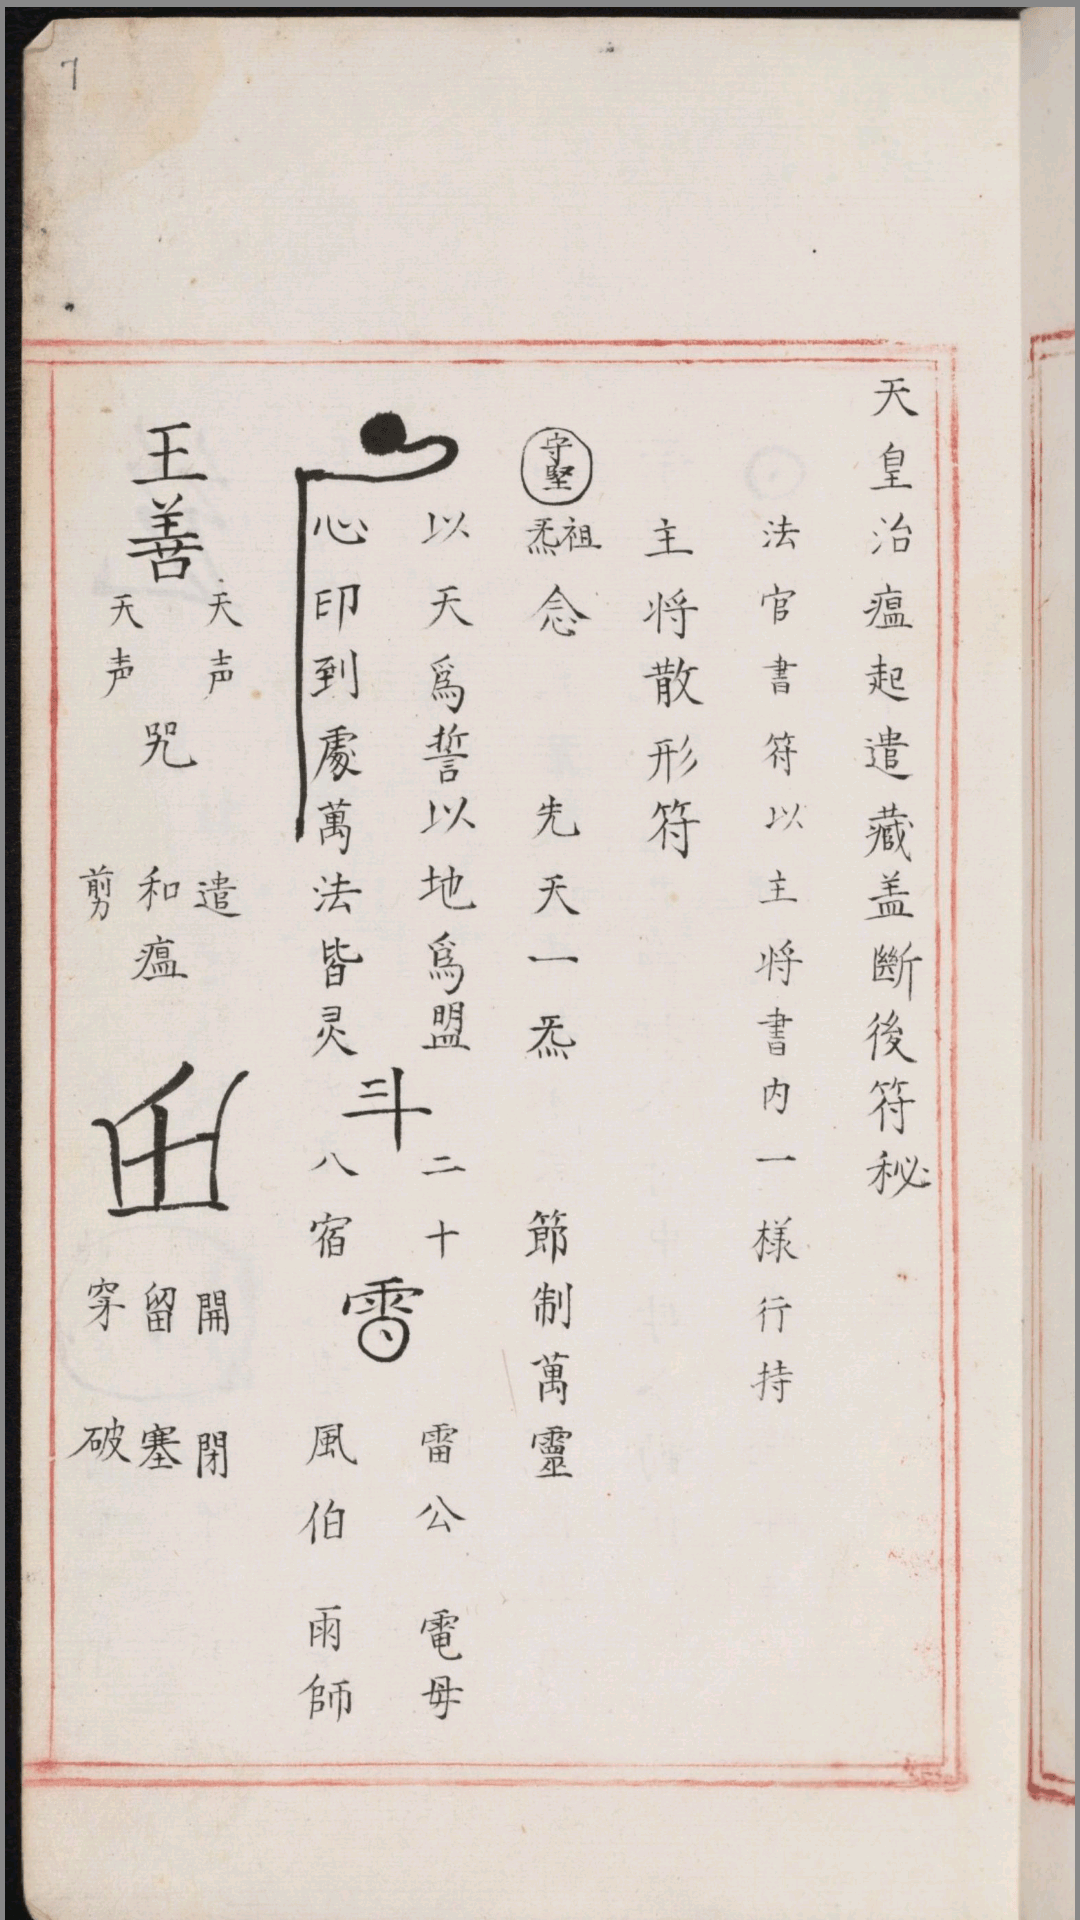 7
天皇治瘟起遣藏盖斷後符秘
法官書符以主將書内一樣行持
主将散形符
守堅
祖炁念 先天一炁 節制萬靈
以天爲誓以地爲盟
心印到處萬法皆灵
斗
二十
八宿
雷公 電母
風伯 雨師
王善
天声
天声
咒
遣
和瘟
剪
開 閉
留 塞
穿 破